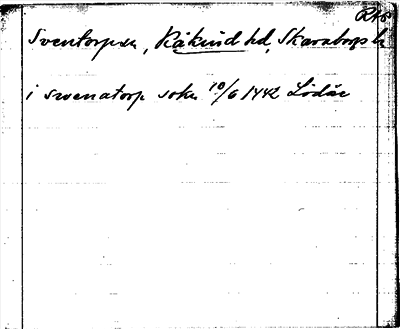 RAp
Sventorp sn, Kåkind hd, Skaraborgs l.
i swenatorp sokn 10/6 1442 Lödöse